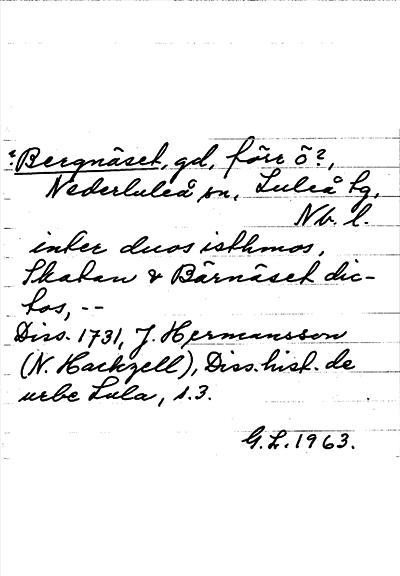 ? Bergnäset, gd, förr ö?,
Nederluleå sn, Luleå tg,
Nb. l.
inter duos isthmos,
Skatan & Bärnäset dic-
tos, --
Diss. 1731, J. Hermansson
(N. Hackzell), Diss. hist. de
urbe Lula, s.3.
G.L. 1963.